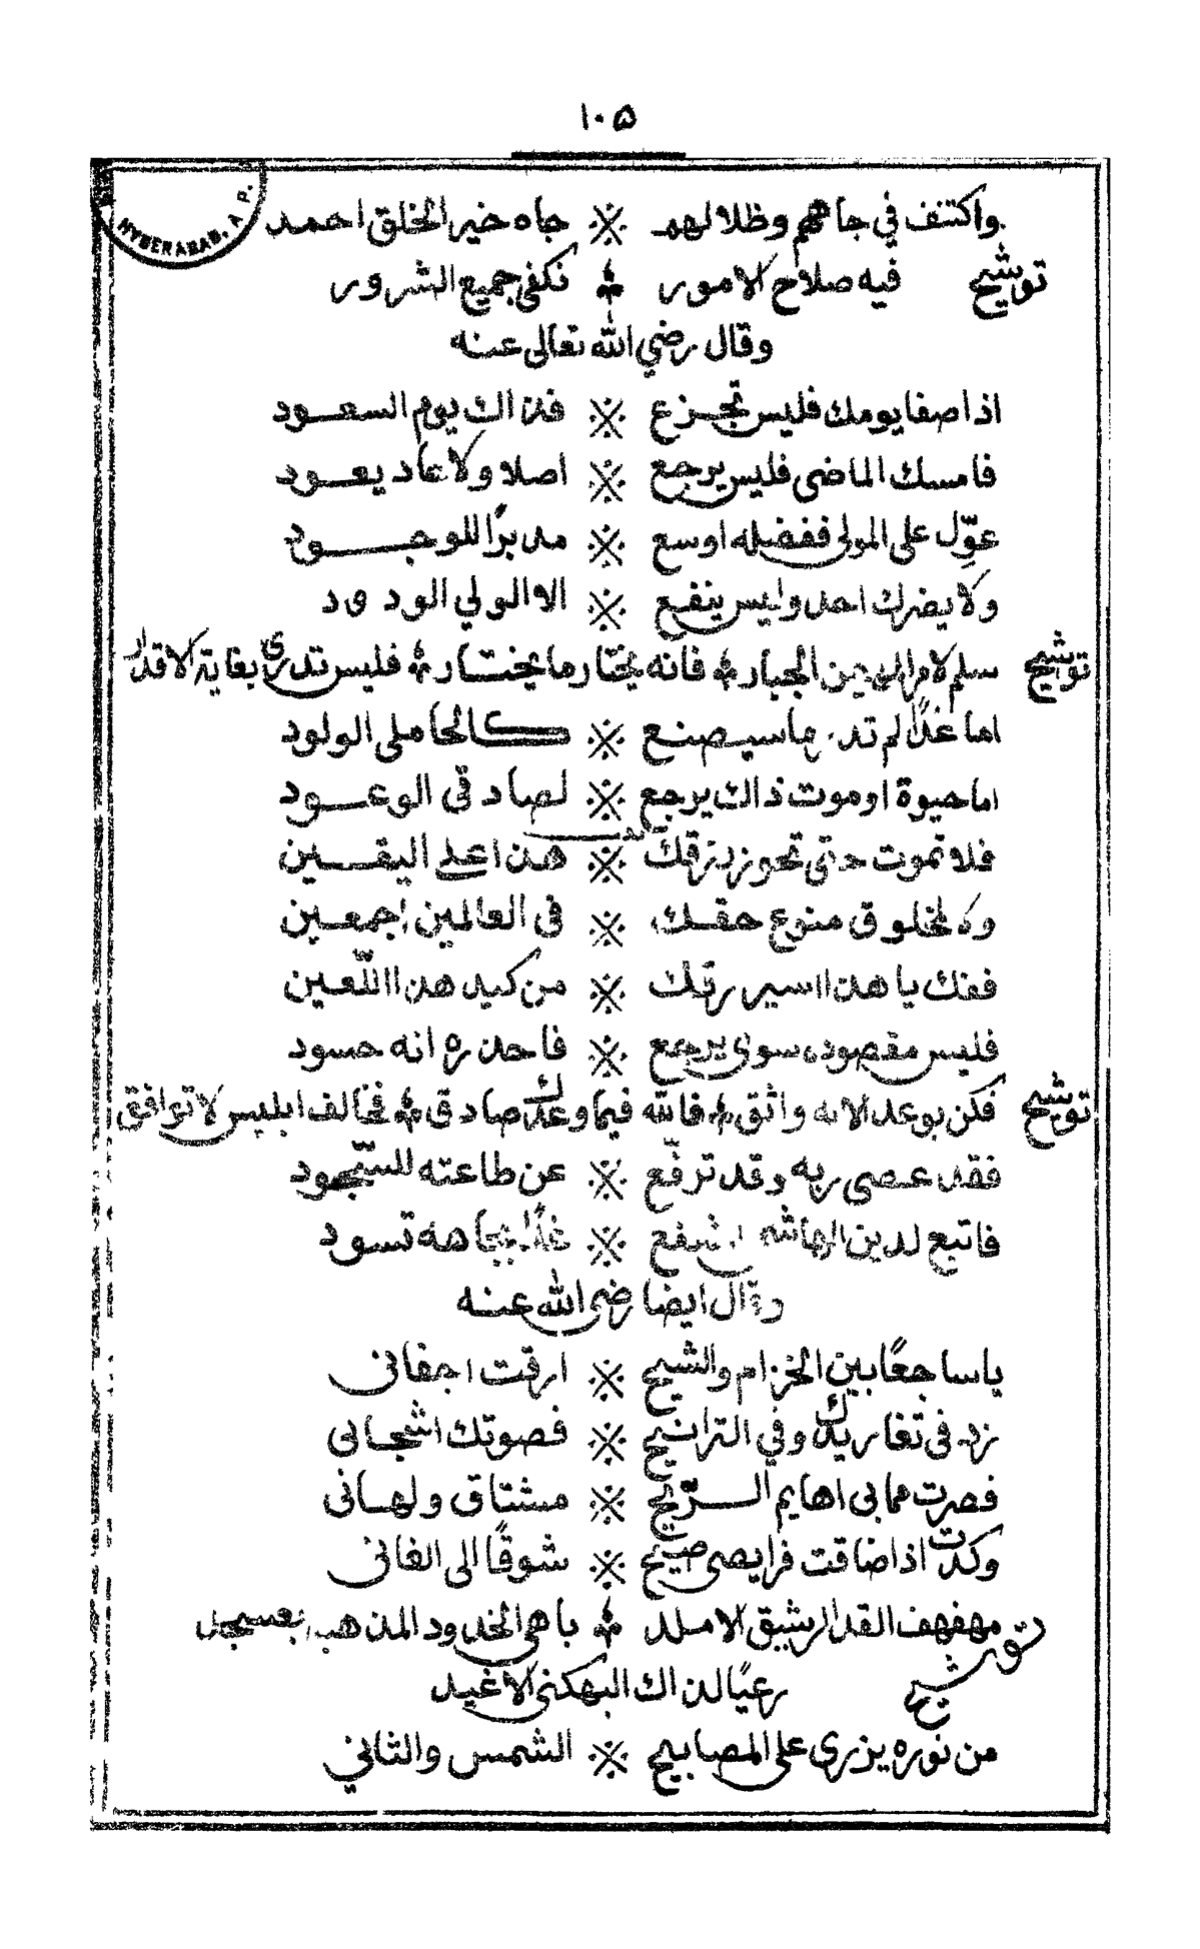 ١٠٥
HYDERABAD. A. P.
واكتنف في جاههم وظلالهم ※ جاه خير الخلق احمد
توشيح فيه صلاح الامور ※ نكفى جميع الشرور
وقال رضي الله تعالى عنه
اذا صفا يومك فليس تجزع ※ فذاك يوم السعود
فامسك الماضى فليس يرجع ※ اصلا ولا عاد يعود
عوّل على المولى ففضله اوسع ※ مدبرًا للوجود
ولا يضرك احد وليس ينفع ※ الا الولي الودود
توشيح سلم لامر المهيمن الجبار ※ فانه يختار ما يختار ※ فليس تدرى بغاية الاقدار
اما غدًا لم تدر ما سيصنع ※ كالحامل الولود
اما حيوة او موت ذاك يرجع ※ لصادق الوعود
فلا تموت حتى تحوز رزقك ※ هذا على اليقين
وكل مخلوق منوع حقك ※ فى العالمين اجمعين
ففك يا هذا اسير رقك ※ من كيد هذا اللعين
فليس مقصوده سوى يرجع ※ فاحذره انه حسود
توشيح فكن بوعد الاله واثق ※ فالله فيما وعدك صادق ※ فخالف ابليس لا توافق
فقد عصى ربه وقد ترفّع ※ عن طاعته للسّجود
فاتبع لدين الهاشمي المشفع ※ غدًا بجاهه تسود
وقال ايضا رضى الله عنه
ياساجعًا بين الخزام والشيح ※ ارقت اجفانى
زد فى تغاريدك وفي التراشيح ※ فصوتك اشجانى
فصرت مما بى اهايم الرّيح ※ مشتاق ولهانى
وكدت اذا ضاقت فرايصى صيح ※ شوقًا الى الغانى
توشيح مهفهف القد الرشيق الاملد ※ باهى الخدود المذهب بعسجد
رعيًا لذاك البهكنى الاغيد
من نوره يزرى على المصابيح ※ الشمس والثاني